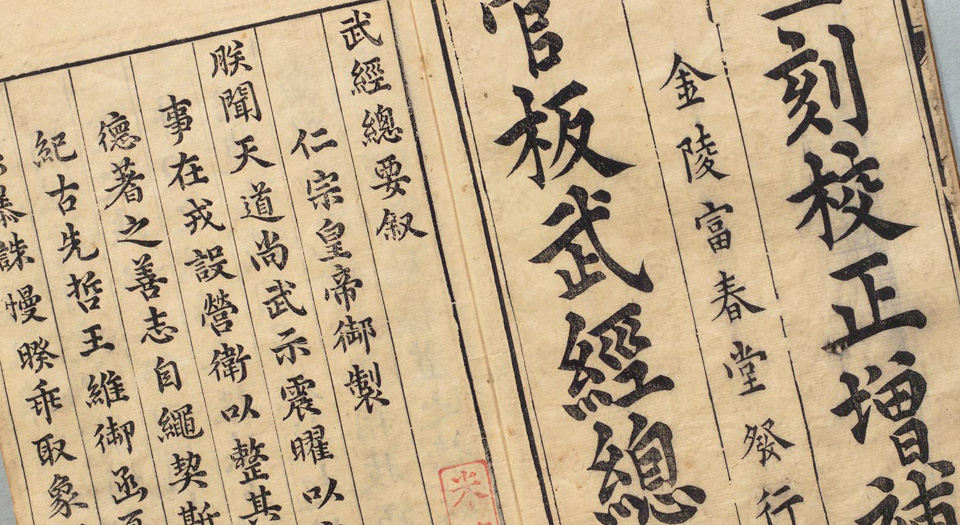 刻校正增補
金陵富春堂發行
官板武經總
武經總要叙
仁宗皇帝御製
朕聞天道尚武示震曜以
事在戎設營衛以整其
德著之善志自繩契
紀古先哲王維御
暴誅慢暌乖取象